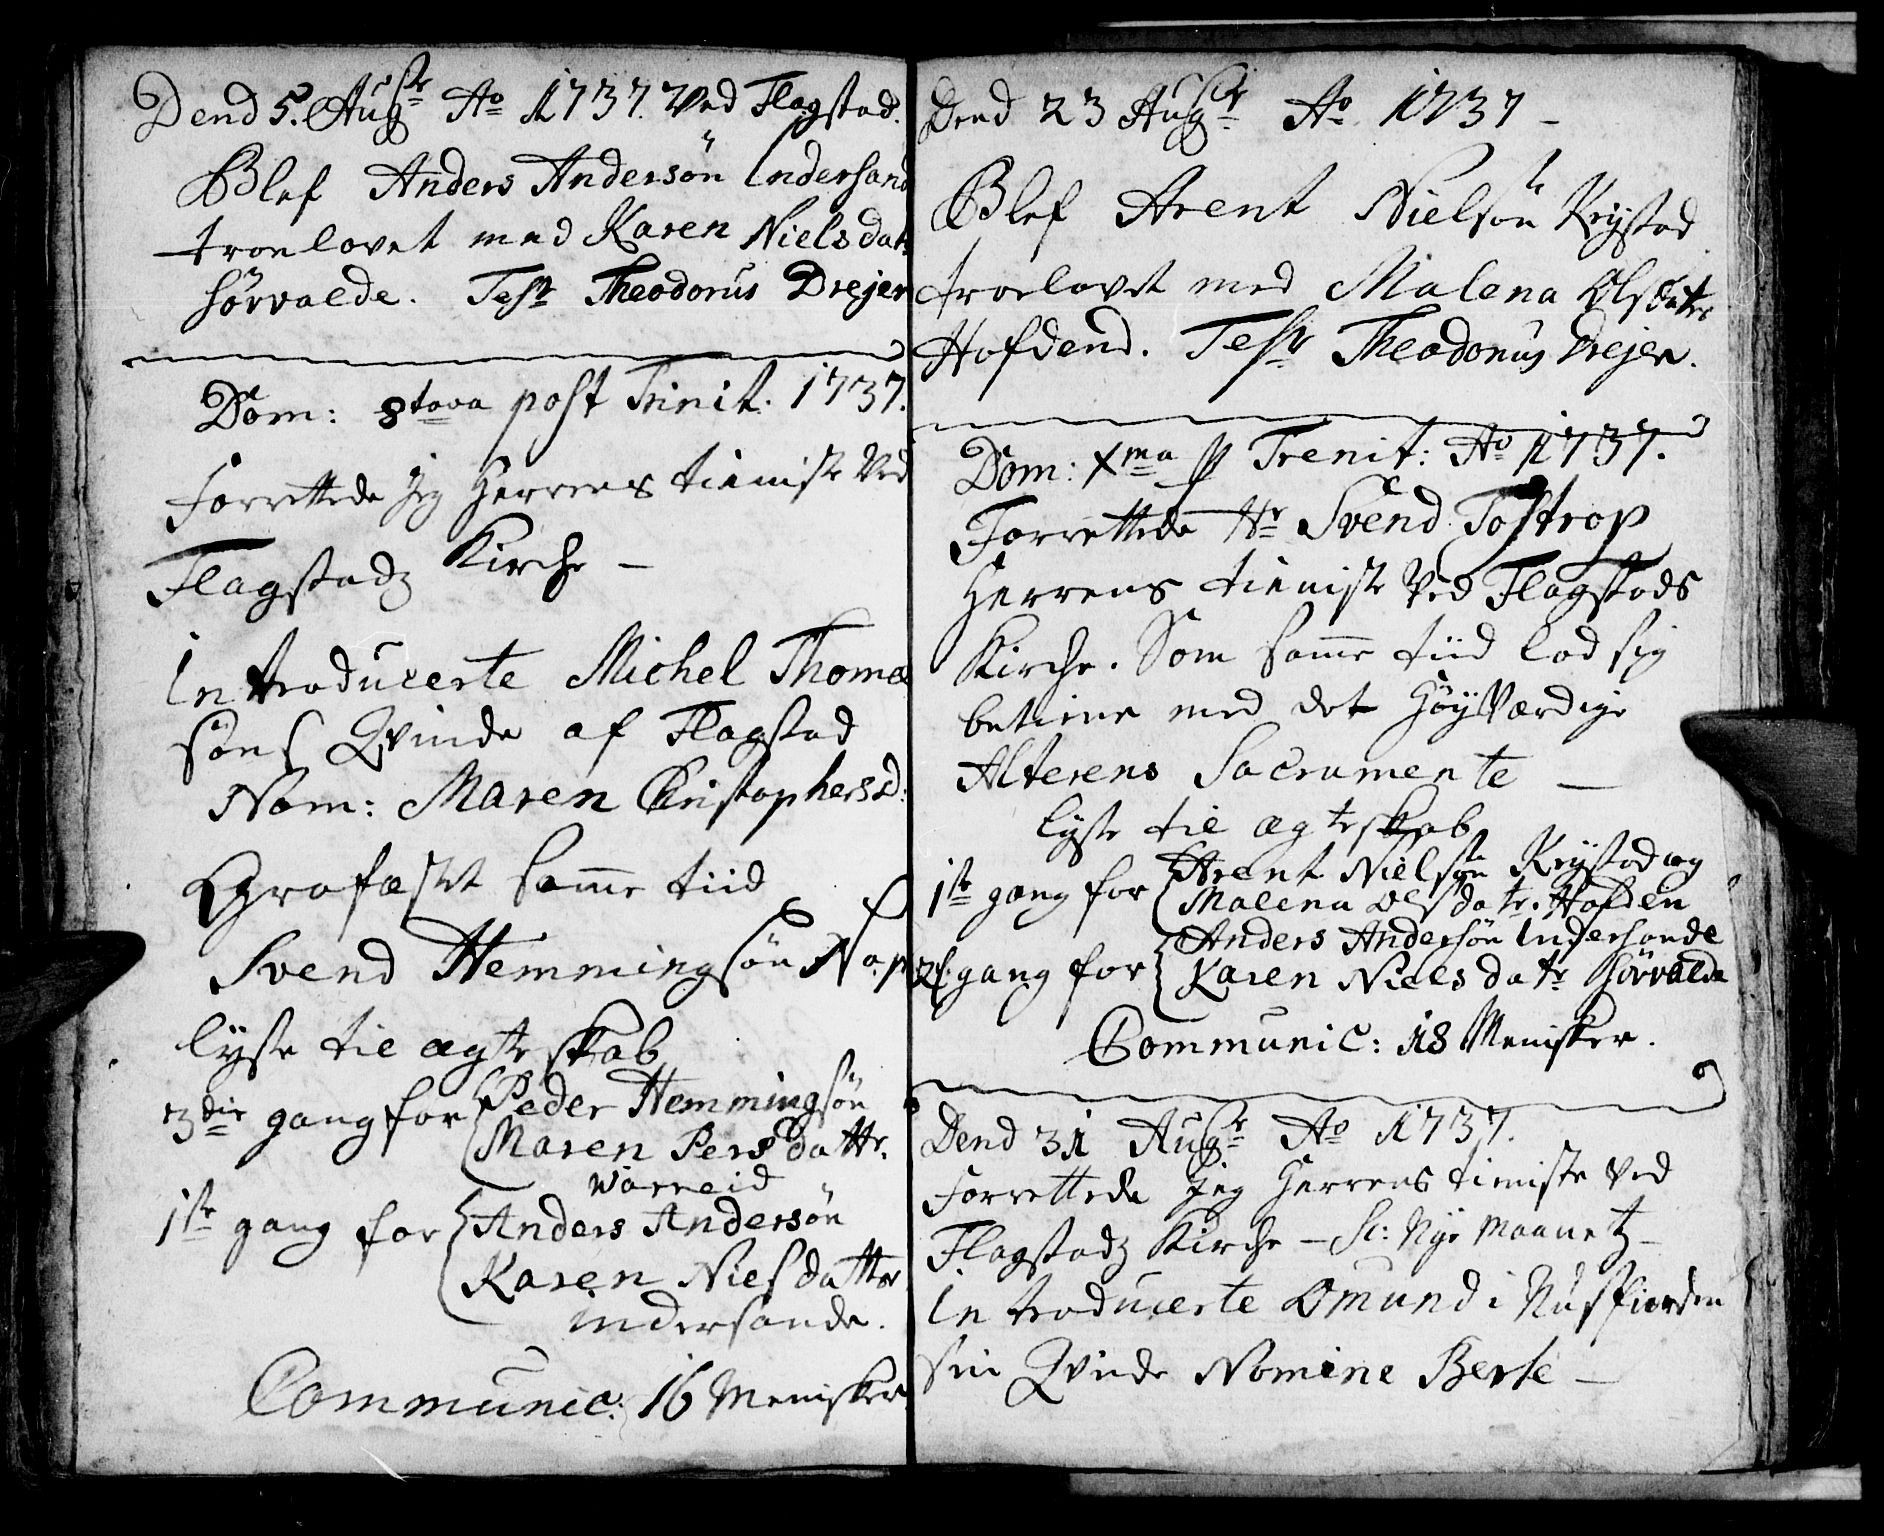 Dend 5. Augstr Ao 1737. Ved Flagstad.
Blef Anders Andersön Indersand
troelovet med Karen Nielsdatr
Sörvalde. Testr Theodorus Drejer
Dom: 8tava post Trinit: 1737.
Forrettede Jeg Herrens tieniste Ved
Flagstadz Kirche –
Introducerte Michel Thomæ
söns Qvinde af Flagstad
Nom: Maren Christophersd:
Grafæstet samme tiid
Svend Hemmingsön Nap
lyste til ægteskab
3die gang for Peder Hemmingsön
Maren Persdattr.
Warreid
1ste gang for Anders Andersön
Karen Nielsdatter
indersande.
Communic: 16 Menisker
Dend 23 Augstr Ao 1737 –
Blef Arent Nielsön Krystad
troelovet med Malena Olsdatr
Hofdend. Testr Theodorus Drejer.
Dom: Xma p Trenit: Ao 1737.
Forrettede Hr Svend Tostrop
Herrens tieniste Ved Flagstads
Kirche. Som samme tiid lod sig
betiene med det HöyVærdige
Alterens Sacramente –
lyste til ægteskab
1ste gang for Arent Nielsön Krystad og
Malena Olsdatr. Hofden
2. gang for Anders Andersön Indersande
Karen Nielsdatr Sörvalde
Communic: 18 Menisker.
Dend 31 Augstr Ao 1737.
Forrettede Jeg Herrens tieniste Ved
Flagstadz Kirche – Sc: Nye Maanetz –
Introducerte Omund i Nusfiorden
sin Qvinde Nomine Berte –